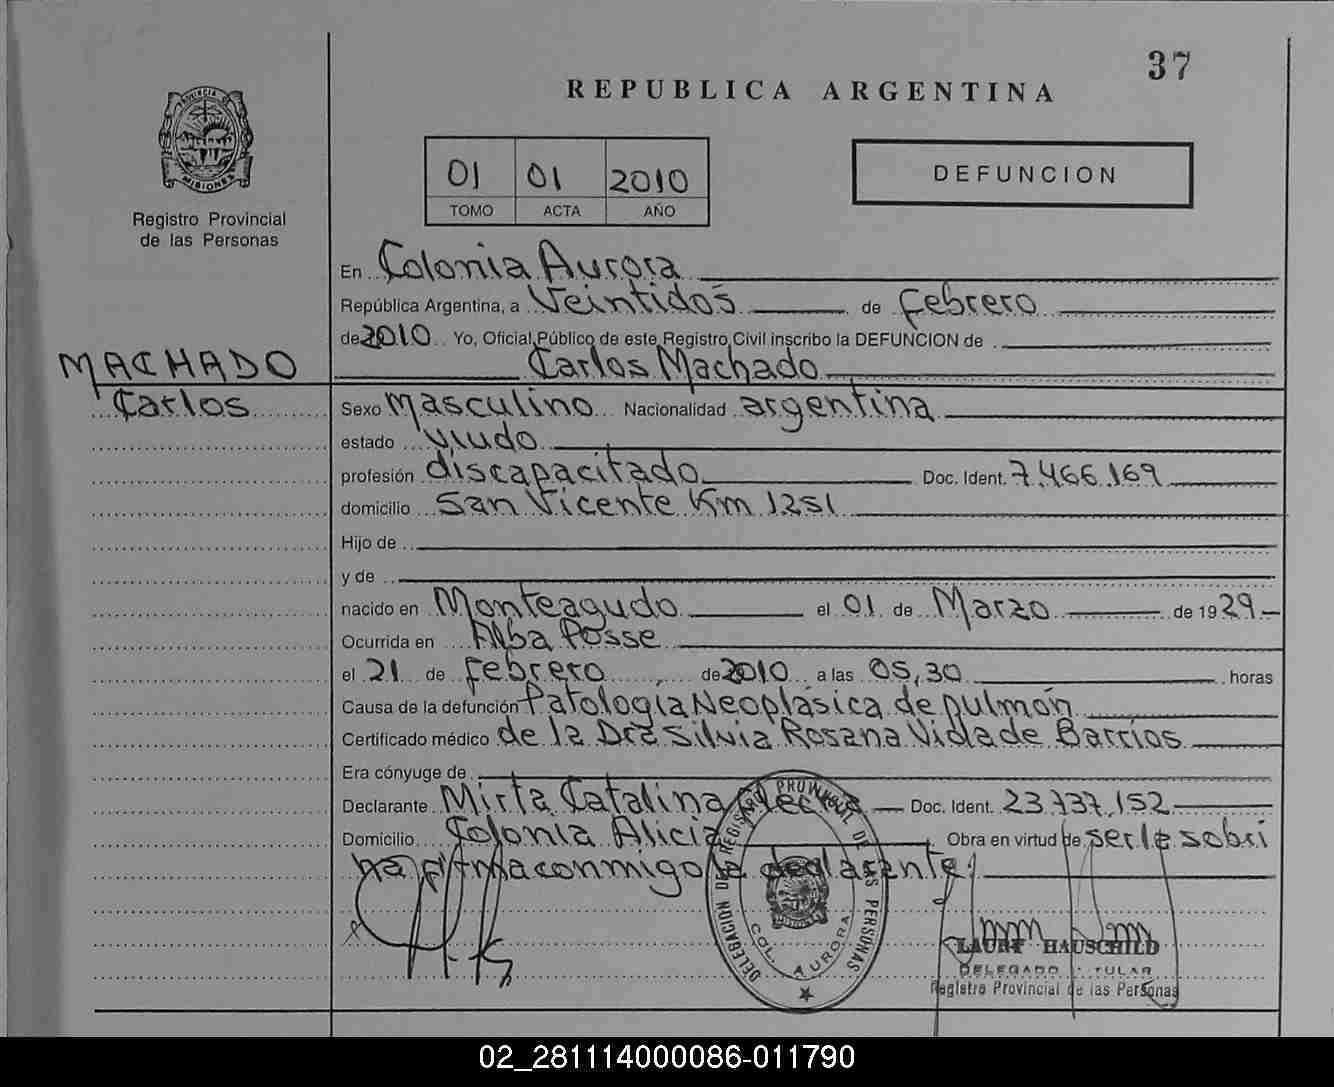 37
REPUBLICA ARGENTINA
PROVINCIA DE
MISIONES
Registro Provincial
de las Personas
01 01 2010
TOMO ACTA AÑO
DEFUNCION
En Colonia Aurora
República Argentina, a Veintidós de Febrero
de 2010 Yo, Oficial Público de este Registro Civil inscribo la DEFUNCION de
MACHADO
Carlos
Carlos Machado
Sexo Masculino Nacionalidad argentina
estado viudo
profesión discapacitado Doc. Ident. 7.466.169
domicilio San Vicente Km 1251
Hijo de
y de
nacido en Monteagudo el 01 de Marzo de 1929
Ocurrida en Alba Posse
el 21 de Febrero de 2010 a las 05,30 horas
Causa de la defunción Patología Neoplásica de pulmón
Certificado médico de la Dra Silvia Rosana Viola de Barrios
Era cónyuge de
Declarante Mirta Catalina Doc. Ident. 23.737.152
Domicilio Colonia Alicia Obra en virtud de serle sobri
na firma conmigo la declarante
DELEGACION DEL REGISTRO PROVINCIAL DE LAS PERSONAS
COL. AURORA
HAUSCHILD
Registro Provincial de las Personas
02_281114000086-011790